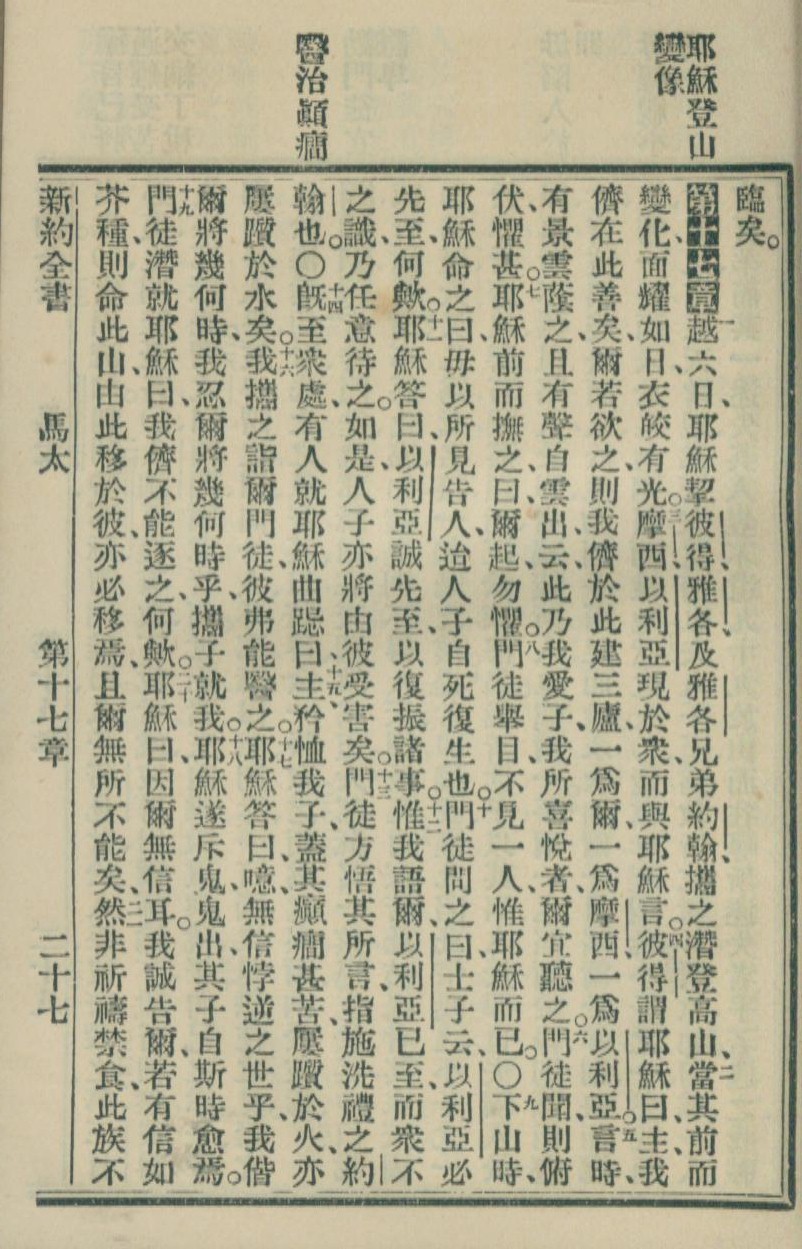 耶穌登山
變像
醫治顚癎
臨矣。
第十七章一越六日、耶穌挈彼得、雅各、及雅各兄弟約翰、攜之潛登高山、二當其前而
變化、面耀如日、衣皎有光。三摩西以利亞現於衆、而與耶穌言。四彼得謂耶穌曰、主、我
儕在此善矣、爾若欲之、則我儕於此建三廬、一爲爾、一爲摩西、一爲以利亞。五言時、
有景雲蔭之、且有聲自雲出、云、此乃我愛子、我所喜悅者、爾宜聽之。六門徒聞、則俯
伏、懼甚。七耶穌前而撫之、曰、爾起、勿懼。八門徒舉目、不見一人、惟耶穌而已。〇九下山時、
耶穌命之曰、毋以所見告人、迨人子自死復生也。十門徒問之曰、士子云、以利亞必
先至、何歟。十一耶穌答曰、以利亞誠先至、以復振諸事。十二惟我語爾、以利亞已至、而衆不
之識、乃任意待之。如是、人子亦將由彼受害矣。十三門徒方悟其所言、指施洗禮之約
翰也。〇十四旣至衆處、有人就耶穌曲跽曰、十五主、矜恤我子、蓋其癲癎甚苦、屢躓於火、亦
屢躓於水矣。十六我攜之詣爾門徒、彼弗能醫之。十七耶穌答曰、噫、無信悖逆之世乎、我偕
爾將幾何時、我忍爾將幾何時乎、攜子就我。十八耶穌遂斥鬼、鬼出、其子自斯時愈焉。
十九門徒潛就耶穌曰、我儕不能逐之、何歟。二十耶穌曰、因爾無信耳。我誠告爾、若有信如
芥種、則命此山、由此移於彼、亦必移焉、且爾無所不能矣、二一然非祈禱禁食、此族不
新約全書 馬太 第十七章 二十七